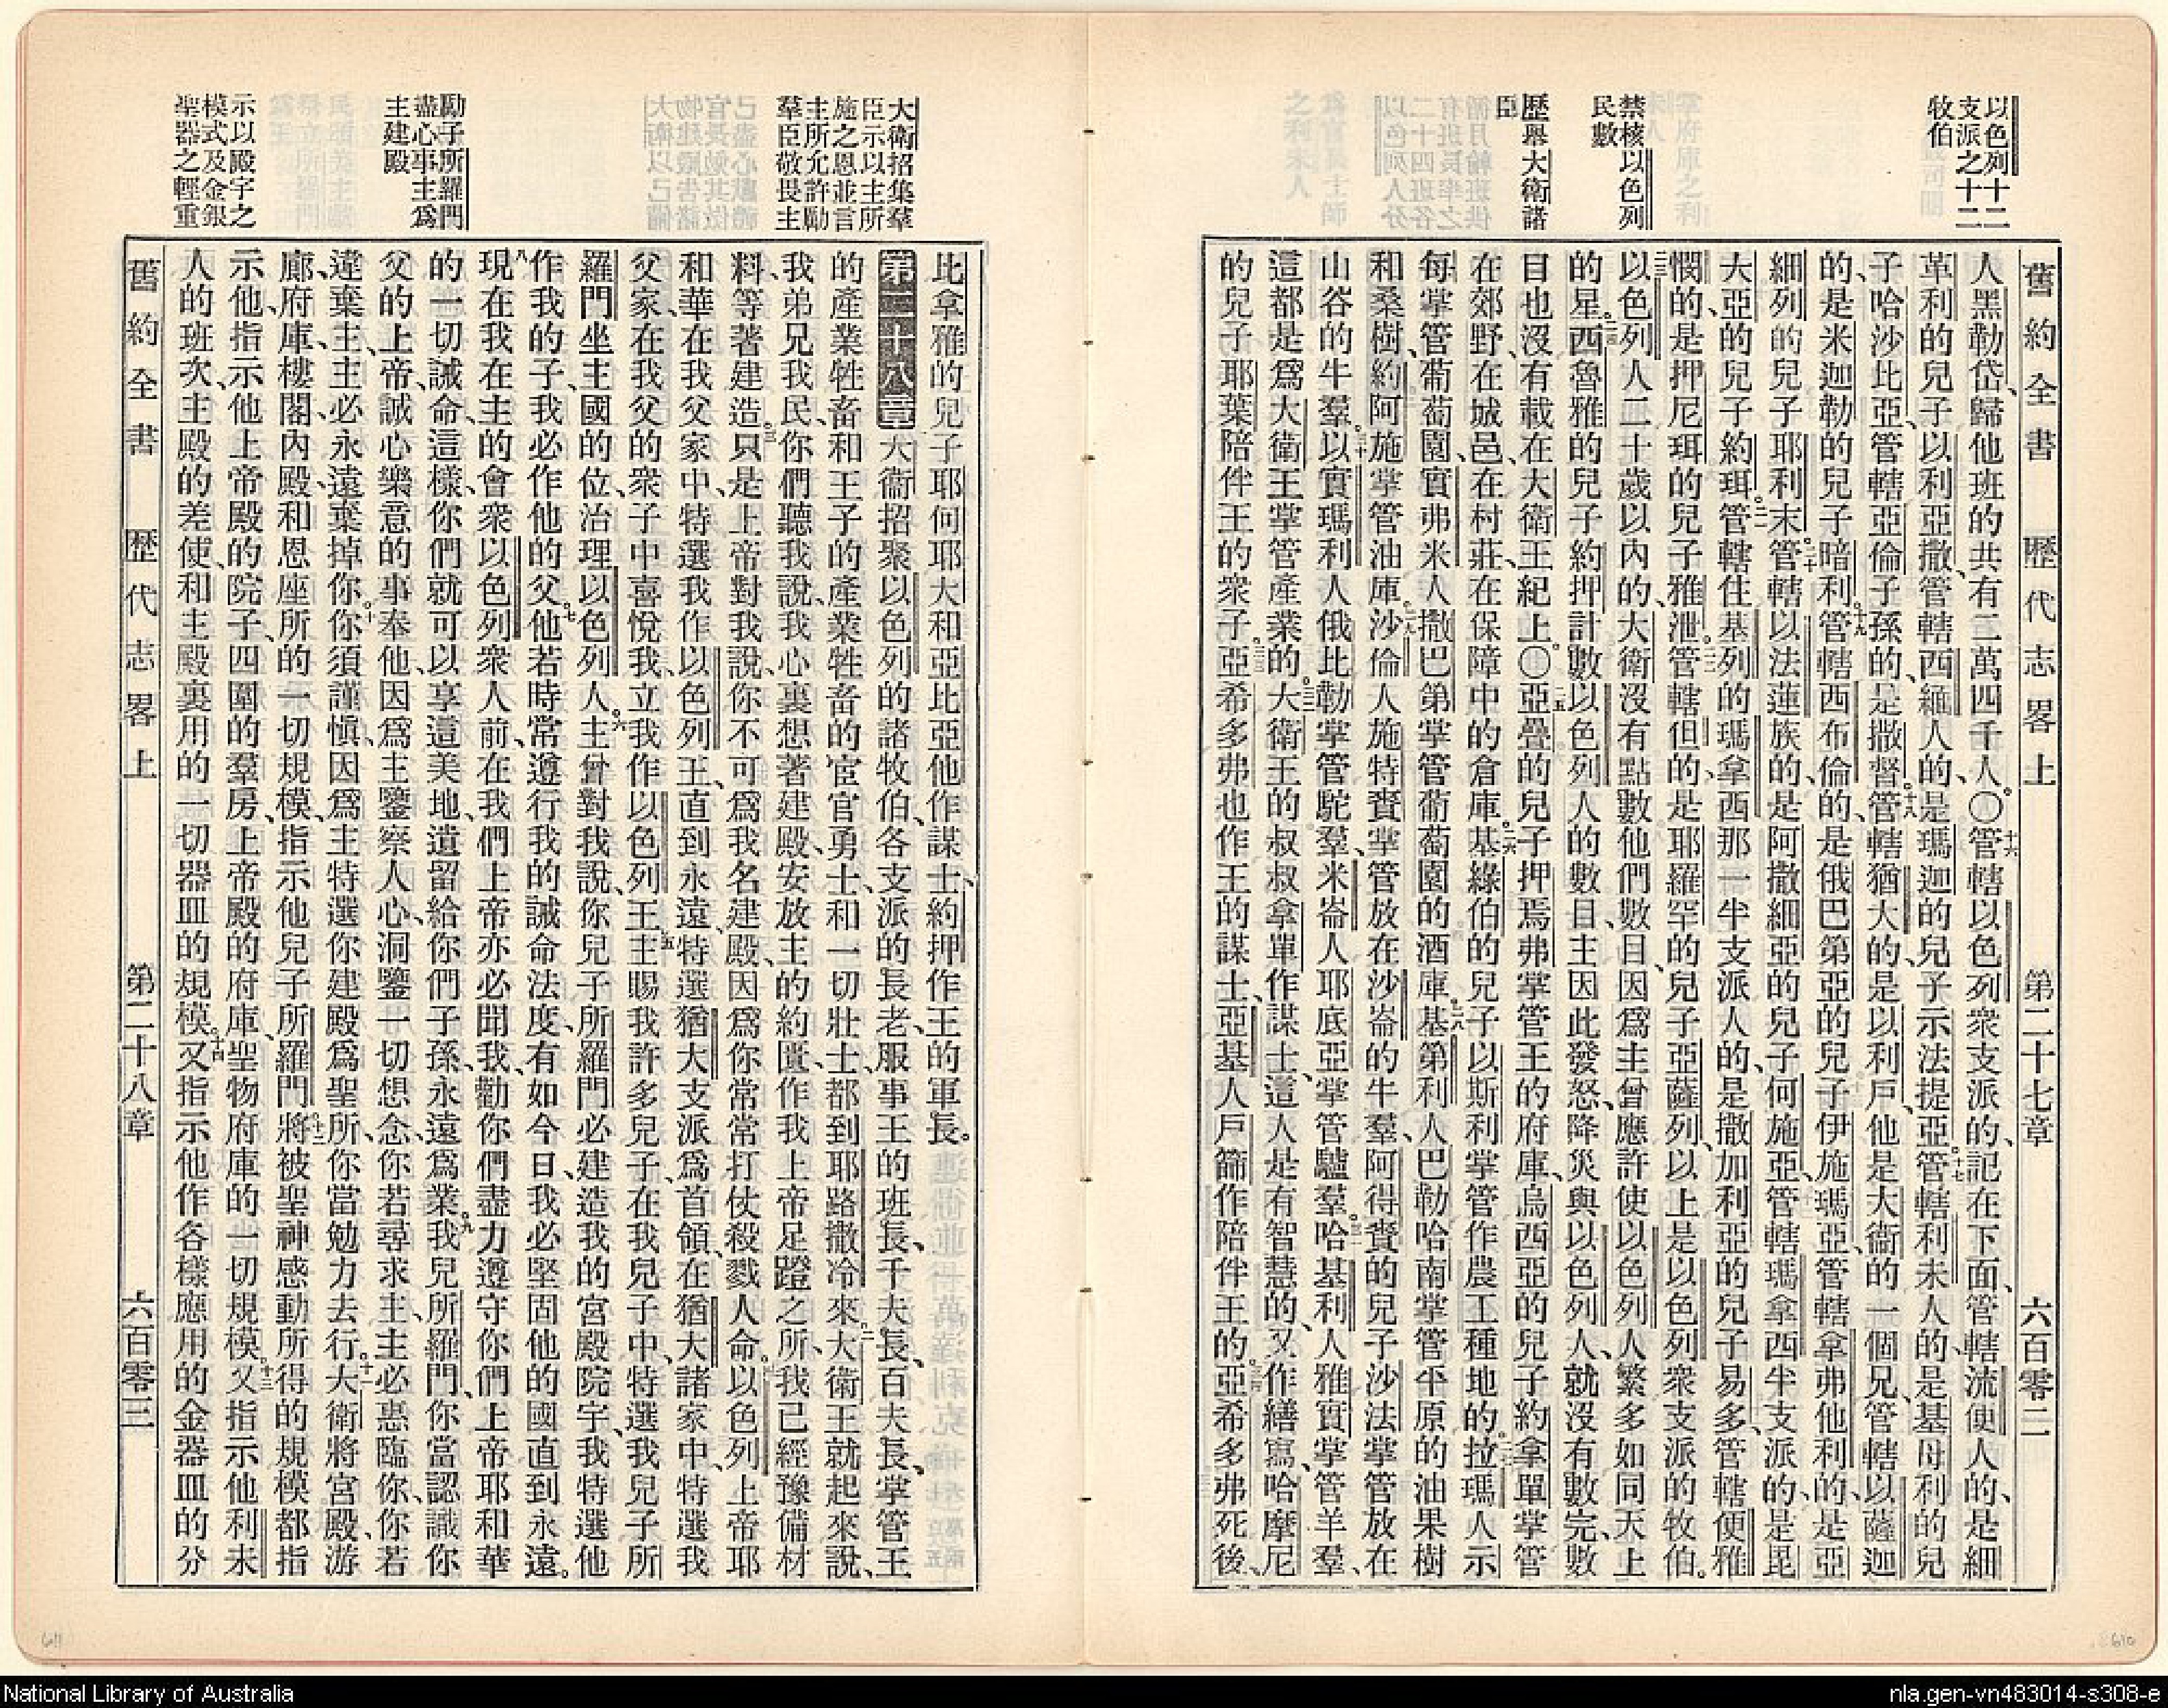 以色列十二
支派之十二
牧伯
禁核以色列
民數
歷舉大衛諸
臣
舊約全書 歷代志畧上 第二十七章 六百零二
人黑勒岱、歸他班的共有二萬四千人。〇十六管轄以色列衆支派的、記在下面、管轄流便人的、是細
革利的兒子以利亞撒、管轄西緬人的、是瑪迦的兒子示法提亞。十七管轄利未人的、是基母利的兒
子哈沙比亞、管轄亞倫子孫的、是撒督。十八管轄猶大的、是以利戶、他是大衛的一個兄、管轄以薩迦
的、是米迦勒的兒子暗利。十九管轄西布倫的、是俄巴第亞的兒子伊施瑪亞、管轄拿弗他利的、是亞
細列的兒子耶利末。二十管轄以法蓮族的、是阿撒細亞的兒子何施亞、管轄瑪拿西半支派的、是毘
大亞的兒子約珥。二一管轄住基列的瑪拿西那一半支派人的、是撒加利亞的兒子易多、管轄便雅
憫的、是押尼珥的兒子雅泄。二二管轄但的、是耶羅罕的兒子亞薩列、以上是以色列衆支派的牧伯。
二三以色列人二十歲以內的、大衛沒有點數他們數目、因爲主曾應許使以色列人繁多如同天上
的星。二四西魯雅的兒子約押計數以色列人的數目、主因此發怒、降災與以色列人、就沒有數完、數
目也沒有載在大衛王紀上。〇二五亞疊的兒子押焉弗掌管王的府庫、烏西亞的兒子約拿單掌管
在郊野、在城邑、在村莊、在保障中的倉庫。二六基綠伯的兒子以斯利掌管作農工種地的。二七拉瑪人示
每掌管葡萄園、實弗米人撒巴第掌管葡萄園的酒庫。二八基第利人巴勒哈南掌管平原的油果樹
和桑樹、約阿施掌管油庫。二九沙倫人施特賚掌管放在沙崙的牛羣、阿得賚的兒子沙法掌管放在
山谷的牛羣。三十以實瑪利人俄比勒掌管駝羣、米崙人耶底亞掌管驢羣。三一哈基利人雅實掌管羊羣、
這都是爲大衛王掌管產業的。三二大衛王的叔叔拿單作謀士、這人是有智慧的、又作繕寫、哈摩尼
的兒子耶葉陪伴王的衆子。三三亞希多弗也作王的謀士、亞基人戶篩作陪伴王的。三四亞希多弗死後、
大衛招集羣
臣示以主所
施之恩並言
主所允許勵
羣臣敬畏主
勵子所羅門
盡心事主爲
主建殿
示以殿宇之
模式及金銀
聖器之輕重
比拿雅的兒子耶何耶大和亞比亞他作謀士、約押作王的軍長。
第二十八章 大衛招聚以色列的諸牧伯、各支派的長老、服事王的班長、千夫長、百夫長、掌管王
的產業牲畜和王子的產業牲畜的、宦官勇士、和一切壯士、都到耶路撒冷來。二大衛王就起來說、
我弟兄我民、你們聽我說、我心裏想著建殿、安放主的約匱、作我上帝足蹬之所、我已經豫備材
料、等著建造。三只是上帝對我說、你不可爲我名建殿、因爲你常常打仗殺戮人命。四以色列上帝耶
和華在我父家中、特選我作以色列王、直到永遠、特選猶大支派爲首領、在猶大諸家中、特選我
父家、在我父的衆子中喜悅我、立我作以色列王。五主賜我許多兒子、在我兒子中、特選我兒子所
羅門坐主國的位、治理以色列人。六主曾對我說、你兒子所羅門必建造我的宮殿院宇、我特選他
作我的子、我必作他的父。七他若時常遵行我的誡命法度、有如今日、我必堅固他的國直到永遠。
八現在我在主的會衆以色列衆人前、在我們上帝亦必聞我、勸你們盡力遵守你們上帝耶和華
的一切誡命、這樣、你們就可以享這美地、遺留給你們子孫、永遠爲業。九我兒所羅門、你當認識你
父的上帝、誠心樂意的事奉他、因爲主鑒察人心、洞鑒一切想念、你若尋求主、主必惠臨你、你若
違棄主、主必永遠棄掉你。十你須謹慎、因爲主特選你建殿爲聖所、你當勉力去行。十一大衛將宮殿、游
廊、府庫、樓閣、內殿、和恩座所的一切規模、指示他兒子所羅門。十二將被聖神感動所得的規模都指
示他、指示他上帝殿的院子、四圍的羣房、上帝殿的府庫、聖物府庫的一切規模。十三又指示他利未
人的班次、主殿的差使、和主殿裏用的一切器皿的規模。十四又指示他作各樣應用的金器皿的分
舊約全書 歷代志畧上 第二十八章 六百零三
611
610
National Library of Australia
nla.gen-vn483014-s308-e